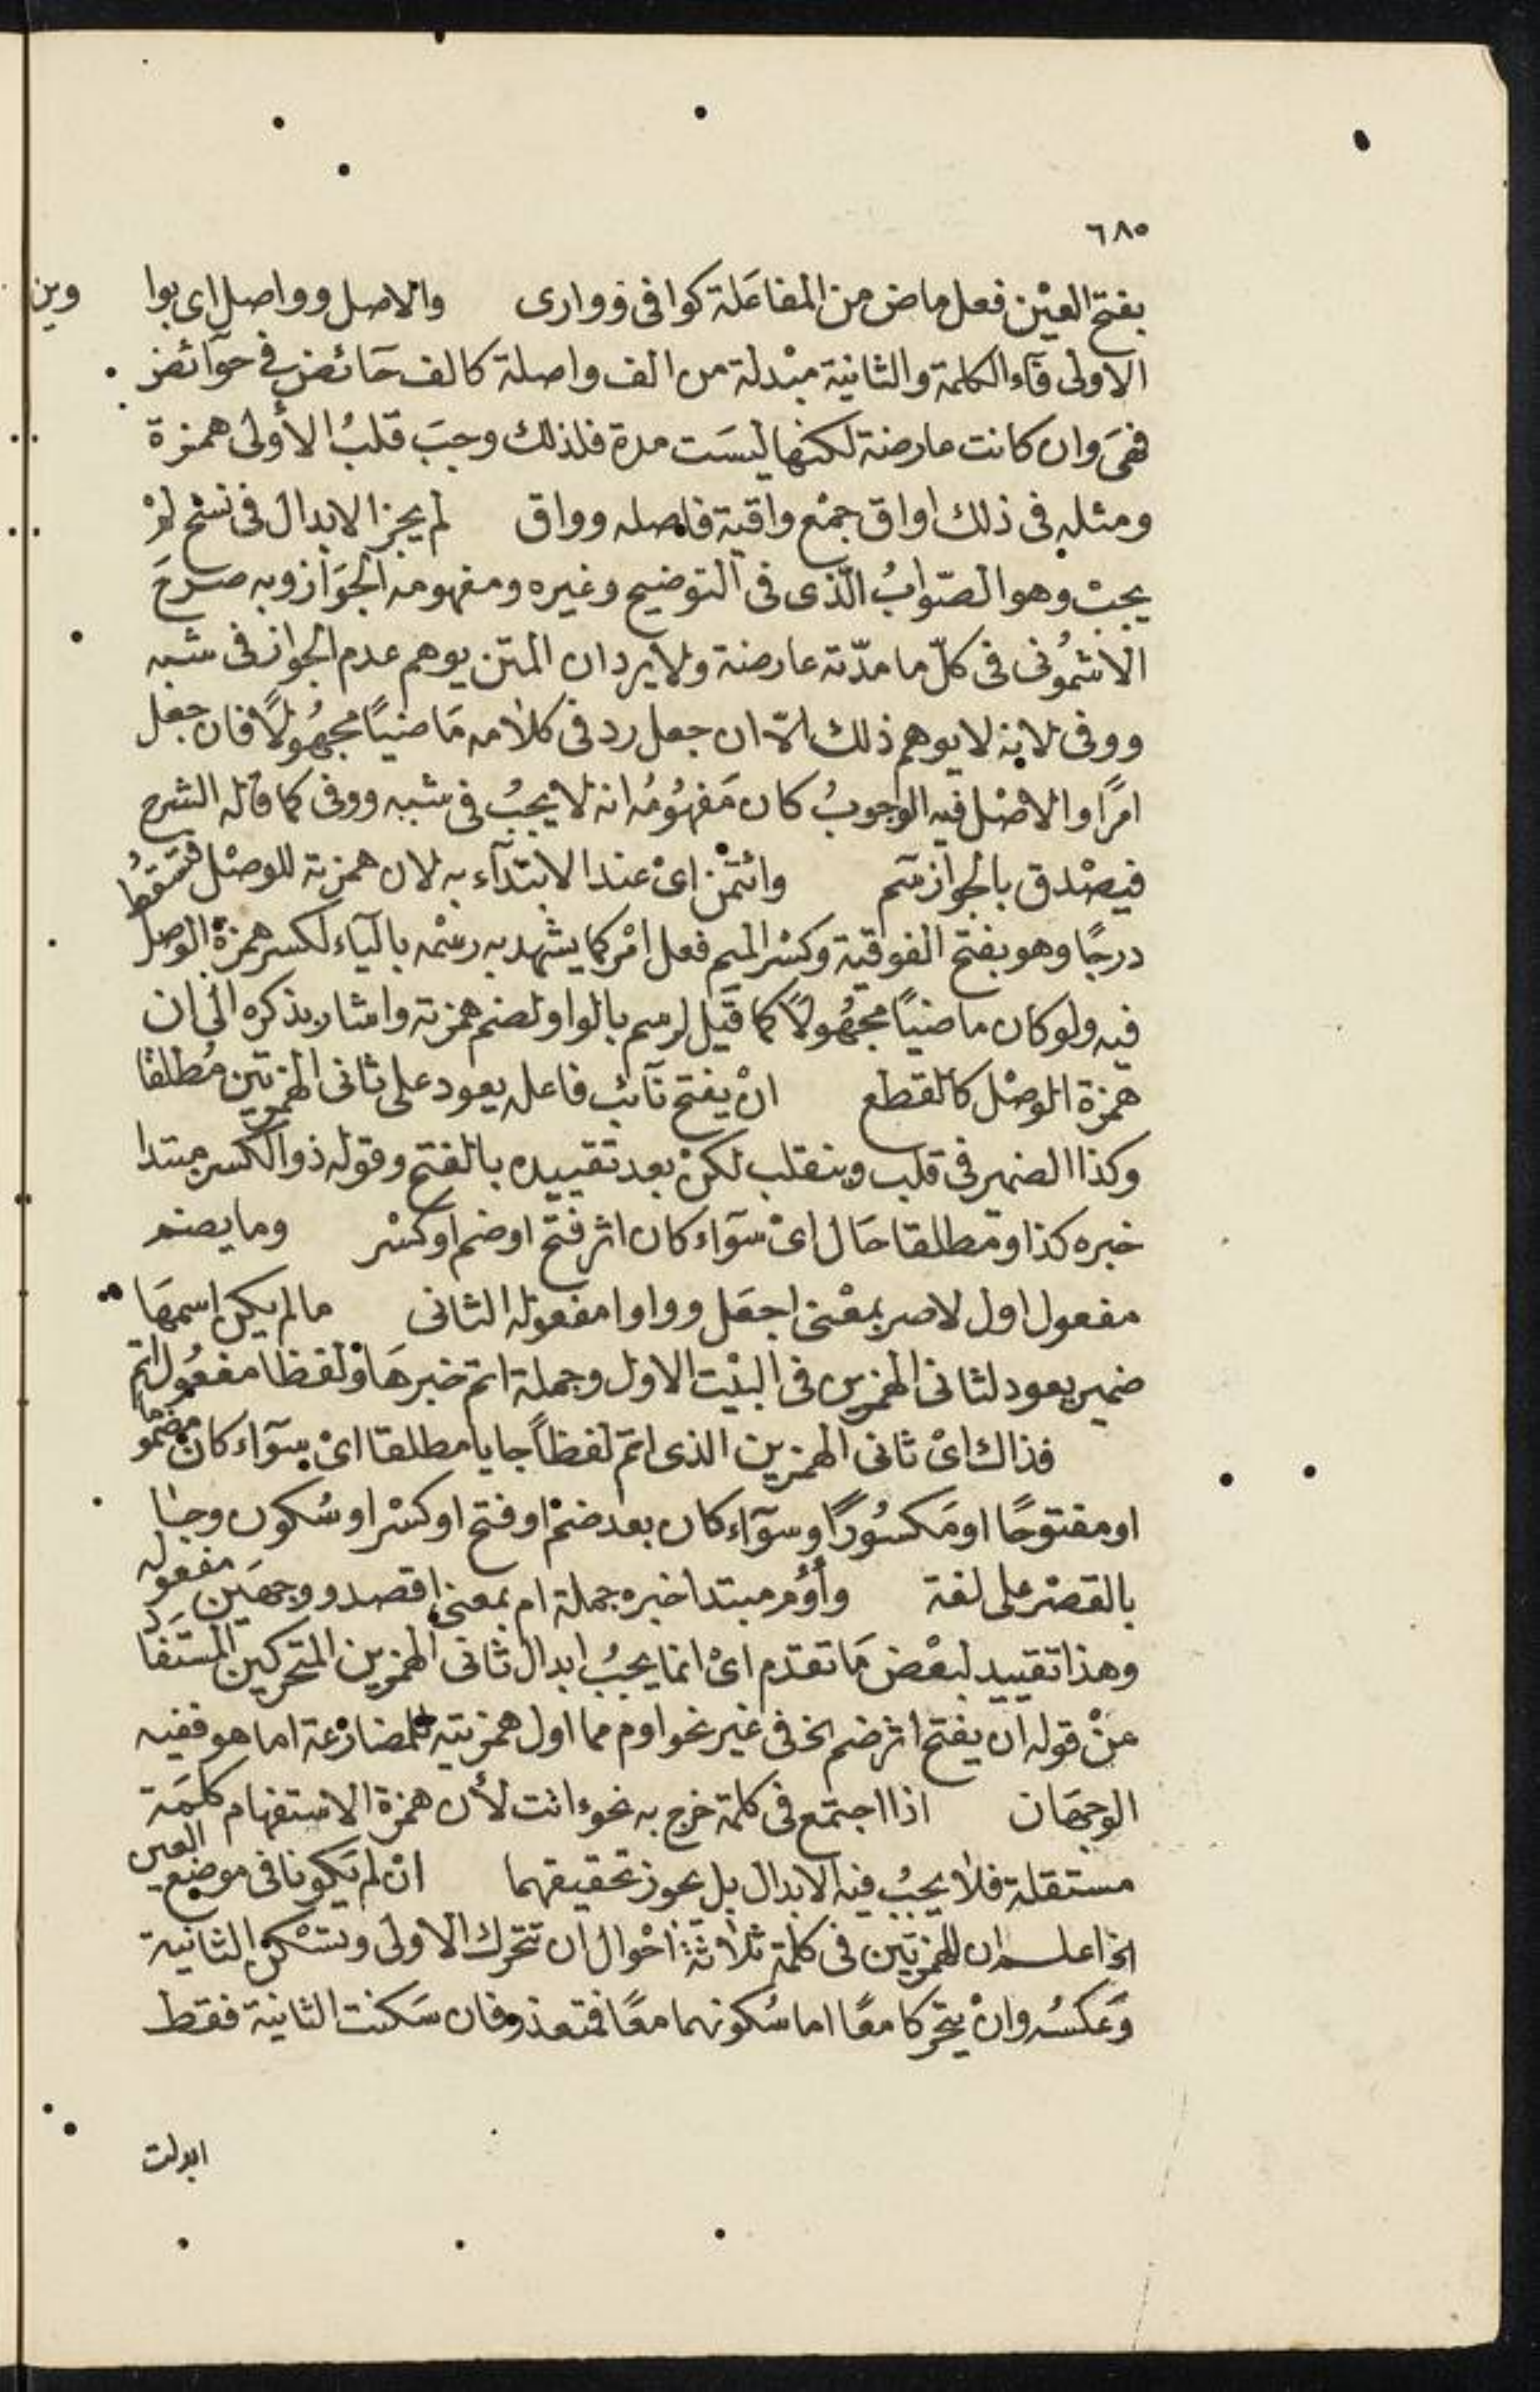 ٦٨٥
بفتح العيْن فعل ماض من المفاعَلة كوافى ووارى والاصل وواصل اى بوا وين
الاولى فآء الكلمة والثانية مبْدلة من الف واصلة كالف حَائض فى حوآئض
فهىَ وان كانت عارضة لكنها ليسَت مدة فلذلك وجبَ قلبُ الأولى همزة
ومثله فى ذلك اواق جمْع واقية فاصله وواق لم يجز الابدال فى نسْخ لمْ
يجبْ وهو الصّوابُ الّذى فى التوضيح وغيره ومفهومه الجوَاز وبه صرحَ
الاشمُونى فى كلّ ما مدّته عارضة ولا يرد ان المتن يوهم عدم الجواز فى شبه
ووفى لانه لا يوهم ذلك الّا ان جعل رد فى كلامه مَاضيًا مجهُولًا فان جعل
امرًا والاصْل فيه الوجوبُ كان مَفهُومُه انه لا يجبُ فى شبه ووفى كما قاله الشرح
فيصْدق بالجواز سَم وائتمْن اىْ عند الابتدآء به لان همزته للوصْل فتسقطُ
درجًا وهو بفتح الفوقية وكسْر الميم فعل امْر كما يشهد به رسْمه باليآء لكسر همزة الوصل
فيه ولو كان ماضيًا مجهُولًا كما قيَل لرسم بالواو لضم همزته واشار بذكره الى ان
همزة الوصْل كالقطع انْ يفتح نآئب فاعله يعود على ثانى الهمزتين مُطلقا
وكذا الضمير فى قلب وينقلب لكنْ بعد تقييده بالفتح وقوله ذو الكسر مبتدا
خبره كذا ومطلقا حَال اىْ سوَآء كان اثر فتح او ضم او كسْر وما يضم
مفعول اول لاصر بمعْنى اجعَل وواوا مفعوله الثانى ما لم يكن اسمهَا
ضمير يعود لثانى الهمزين فى البيْت الاول وجملة اتم خبرهَا ولفظا مفعُول اتم
فذاك اىْ ثانى الهمزين الذى اتم لفظاً جا يا مطلقا اىْ سوَآء كان مضمُوما
او مفتوحًا او مَكسُورًا وسوَآء كان بعد ضمْ او فتح او كسْر او سُكون وجا
بالقصْر على لغة وأؤُم مبتدا خبره جملة ام بمعنى اقصد ووجهَين مفعوله
وهذا تقييد لبعْض مَا تقدّم اىْ انما يجبُ ابدال ثانى الهمزين المتحركين المستفَاد
منْ قوله ان يفتح اثر ضم الخ فى غير نحو اوم مما اول همزتيه للمضارعة اما هو ففيه
الوجهَان اذا اجتمع فى كلمة خرج به نحو ءانت لأن همزة الاستفهام كلمَة
مستقلة فلا يجبُ فيه الابدال بل يجوز تحقيقهما انْ لم يَكونا فى موضع العين
الخ اعلم ان للهمزتين فى كلمَة ثلاثة احْوال ان تتحرك الاولى وتسْكن الثانية
وَعكسُه وانْ يتحركا معًا اما سُكونهما معًا فمتعذر فان سَكنت الثانية فقط
ابدلت